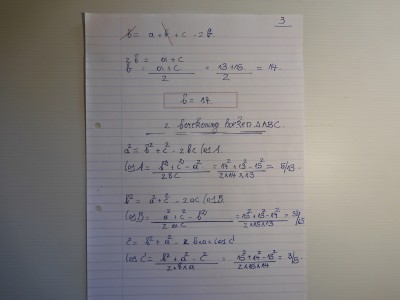 3
b = a + b + c - 2b.
2b = a + c
b = (a + c)/2 = (13+15)/2 = 14.
b = 14
2 berekening hoeken △ABC.
a² = b² + c² - 2bc cos A.
Cos A = (b² + c² - a²)/(2bc) = (14² + 13² - 15²)/(2×14×13) = 5/13
b² = a² + c² - 2ac cos B.
Cos B = (a² + c² - b²)/(2ac) =
c² = b² + a² - 2 b×a×cos C
Cos C = (b² + a² - c²)/(2×b×a) = = 3/5.